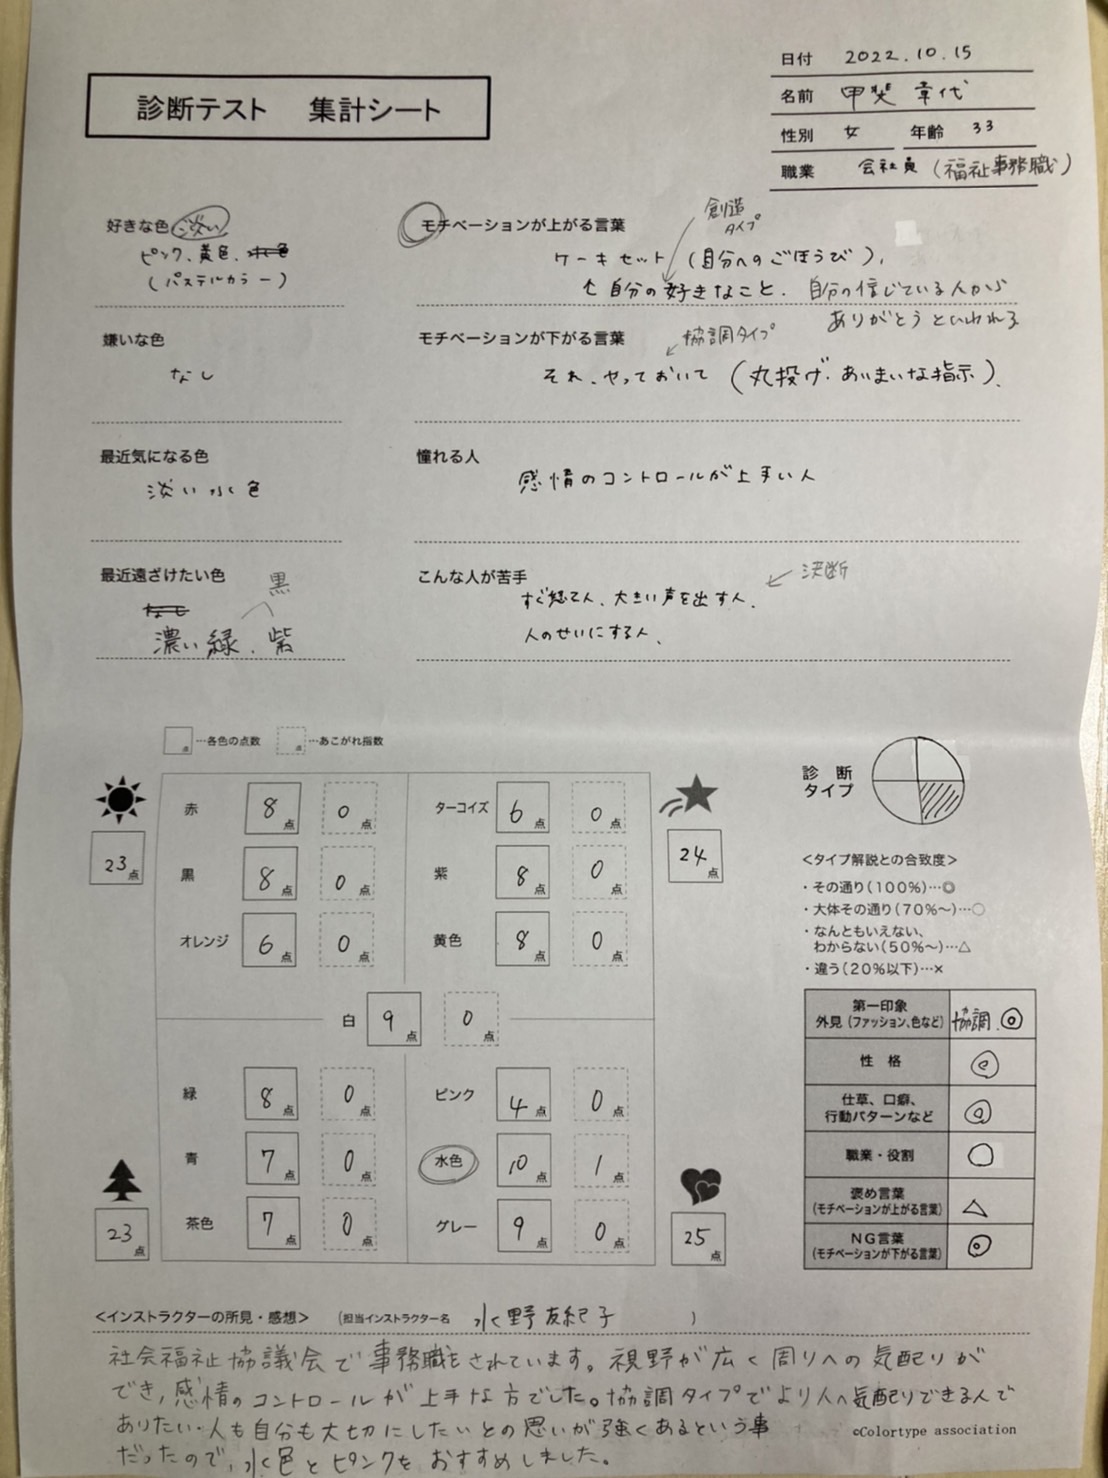 日付 2022.10.15
診断テスト 集計シート
名前 甲斐 幸代
性別 女 年齢 33
職業 会社員（福祉事務職）
好きな色 淡い
ピンク、黄色、
（パステルカラー）
モチベーションが上がる言葉
創造タイプ
ケーキセット（自分へのごほうび）、
自分の好きなこと、自分の信じている人から
ありがとうといわれる
嫌いな色
なし
モチベーションが下がる言葉
協調タイプ
それ、やっておいて（丸投げ・あいまいな指示）、
最近気になる色
淡い水色
憧れる人
感情のコントロールが上手い人
最近遠ざけたい色
黒
なし
濃い緑、紫
こんな人が苦手
決断
すぐ怒る人、大きい声を出す人、
人のせいにする人、
点 …各色の点数 点 …あこがれ指数
赤 8点 0点
ターコイズ 6点 0点
23点
黒 8点 0点
紫 8点 0点
24点
オレンジ 6点 0点
黄色 8点 0点
白 9点 0点
緑 8点 0点
ピンク 4点 0点
青 7点 0点
水色 10点 1点
23点
茶色 7点 0点
グレー 9点 0点
25点
診断
タイプ
＜タイプ解説との合致度＞
・その通り（100％）…◎
・大体その通り（70％〜）…○
・なんともいえない、
わからない（50％〜）…△
・違う（20％以下）…×
第一印象
外見（ファッション、色など） 協調 ◎
性格 ◎
仕草、口癖、
行動パターンなど ◎
職業・役割 ○
褒め言葉
（モチベーションが上がる言葉） △
ＮＧ言葉
（モチベーションが下がる言葉） ◎
＜インストラクターの所見・感想＞ （担当インストラクター名 水野友紀子 ）
社会福祉協議会で事務職をされています。視野が広く周りへの気配りが
でき、感情のコントロールが上手な方でした。協調タイプでより人へ気配りできる人で
ありたい・人も自分も大切にしたいとの思いが強くあるという事
だったので、水色とピンクをおすすめしました。
©Colortype association